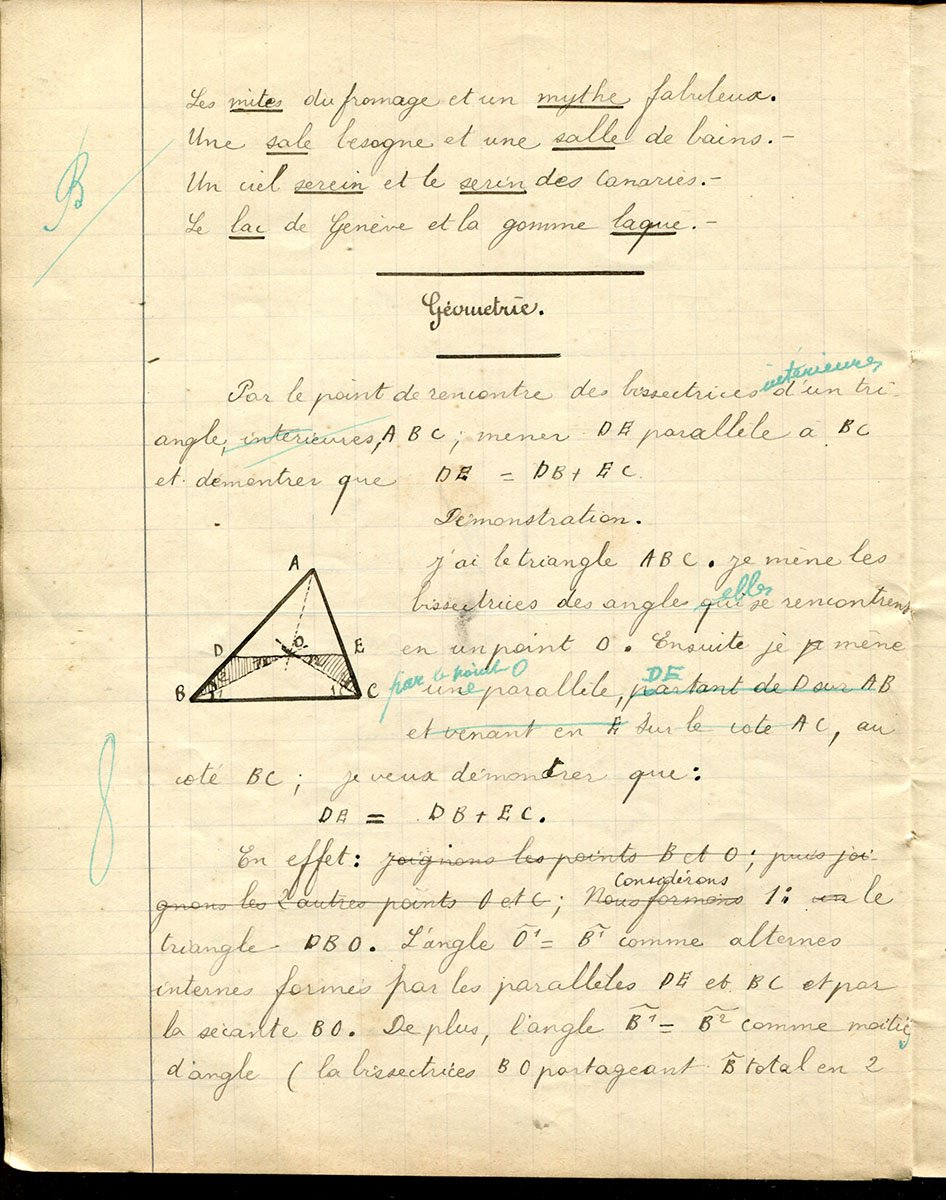 Les mites du fromage et un mythe fabuleux.
Une sale besogne et une salle de bains.-
B
Un ciel serein et le serin des Canaries.-
Le lac de Genève et la gomme laque.-
Géometrie.
intérieures
Par le point de rencontre des bissectrices d'un tri-
angle, intérieures, ABC; mener DE parallèle à BC
et démontrer que DE = DB + EC.
Démonstration.
A
j'ai le triangle ABC. je mène les
elles
bissectrices des angles qui se rencontrent
D O E
en un point O. Ensuite je p mène
par le point O DE
B C 1
une parallèle, partant de D sur AB
et venant en E sur le côté AC, au
côté BC; je veux démontrer que:
DE = DB + EC.
En effet: joignons les points B et O; puis joi-
Considérons
gnons les 2 autres points O et C; Nous formons 1: un le
triangle - DBO. L'angle O¹ = B¹ comme alternes
internes formés par les parallèles DE et BC et par
la sécante BO. De plus, l'angle B¹ = B² comme moitiés
d'angle (la bissectrices BO partageant B total en 2